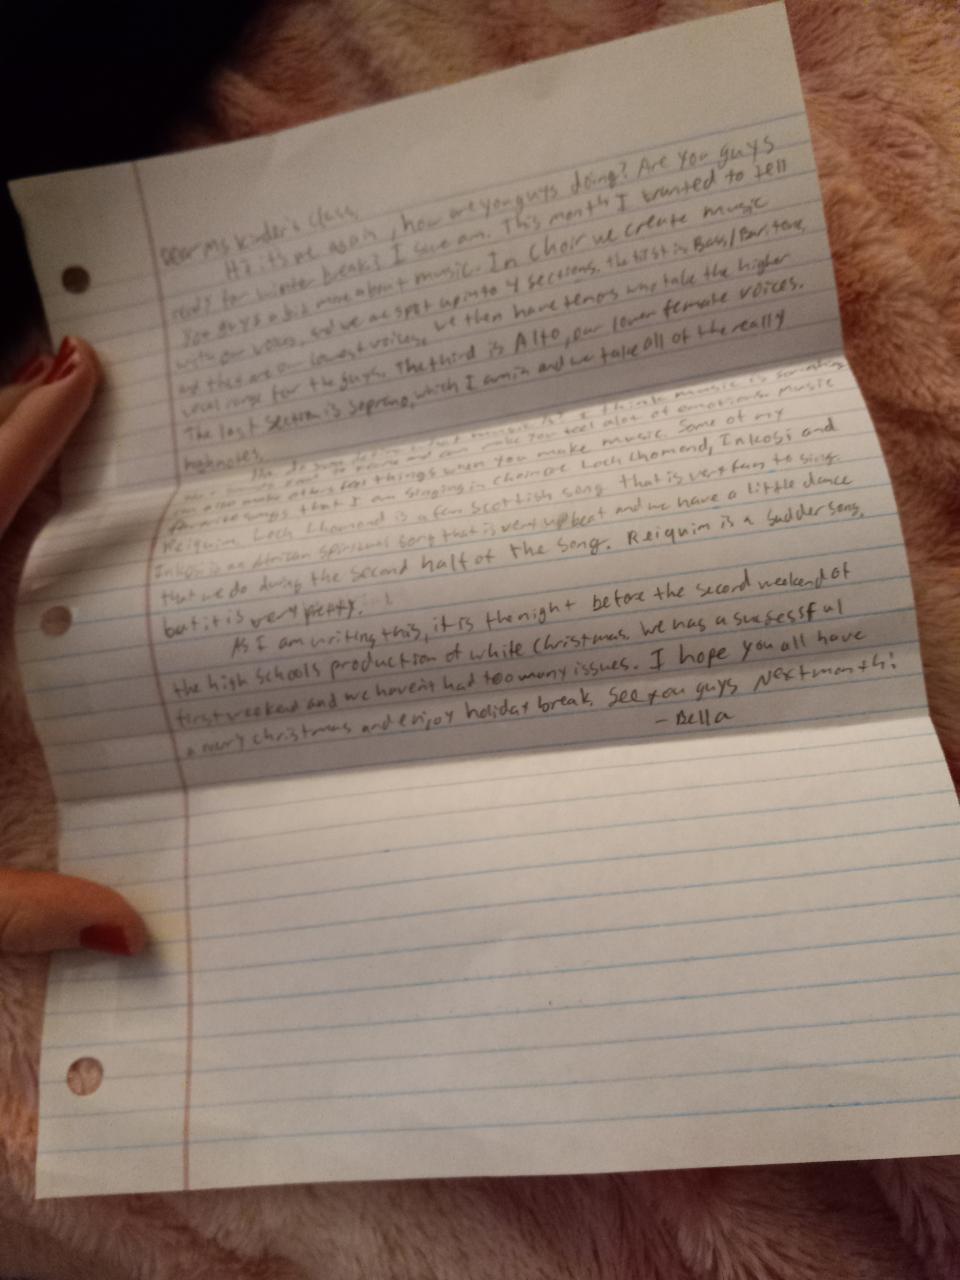 Dear Ms Kinder's Class,
Hi its me again, how are you guys doing? Are you guys
ready for winter break? I sure am. This month I wanted to tell
you guys a bit more about music. In Choir we create music
with our voices, and we are spit up into 4 sections. the first is Bass/Baritone,
and they are our lowest voices. we then have tenors who take the higher
vocal range for the guys. The third is Alto, our lower female voices.
The last section is Soprano, which I am in and we take all of the really
highnotes.
do you music is? I think music is something
and can make you feel alot of emotions. music
can also make others feel things when you make music. Some of my
favorite songs that I am singing in choir are Loch Lhomond, Inkosi and
Reiquim. Loch Lhomond is a fun Scottish song that is very fun to sing.
Inkosi is an African spiritual song that is very upbeat and we have a little dance
that we do during the second half of the song. Reiquim is a sadder song,
but it is very pretty.
As I am writing this, it is the night before the second weekend of
the high schools production of white Christmas. We has a sucessful
first weekend and we haven't had too many issues. I hope you all have
a merry christmas and enjoy holiday break. See you guys next month!
- Bella